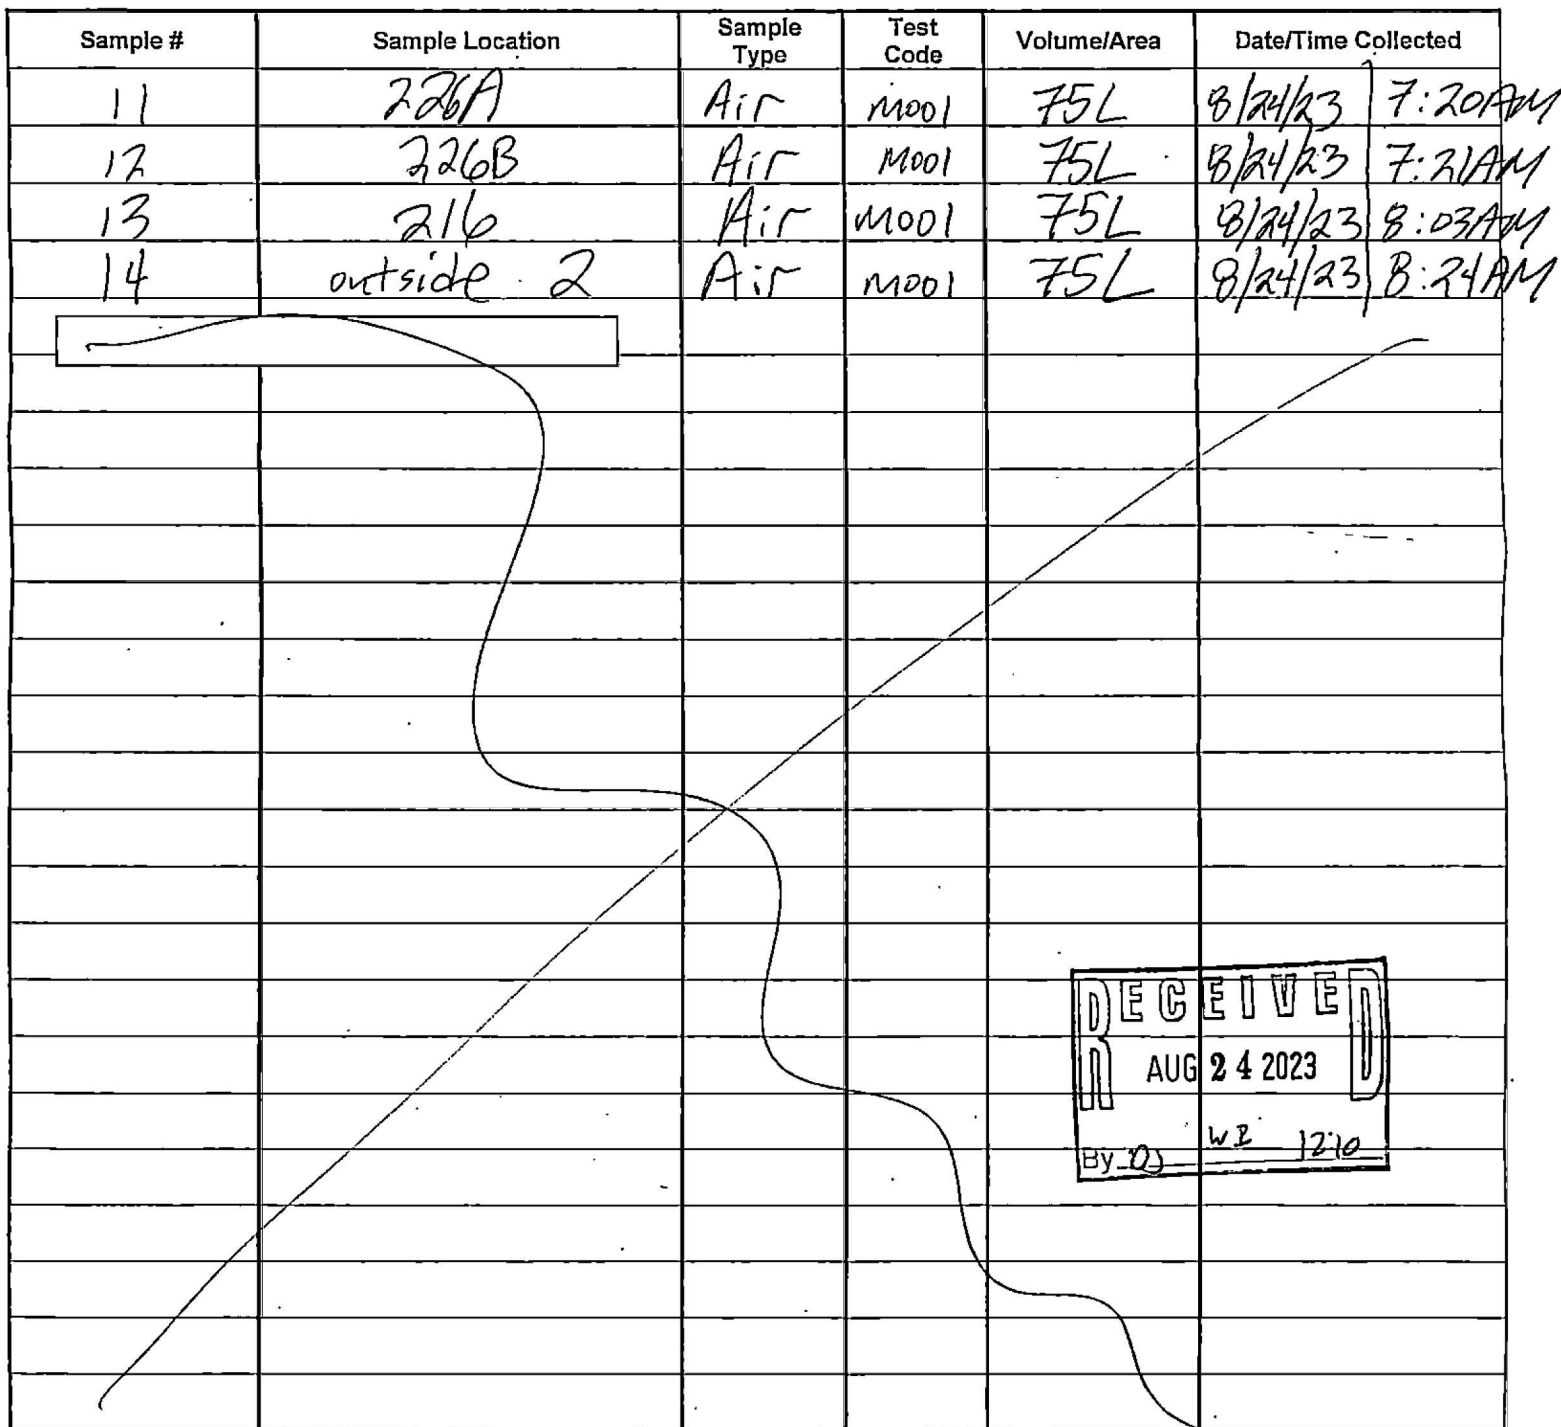 Sample # Sample Location Sample Type Test Code Volume/Area Date/Time Collected
11 226A Air M001 75L 8/24/23 7:20AM
12 226B Air M001 75L 8/24/23 7:21AM
13 216 Air M001 75L 8/24/23 8:03AM
14 outside 2 Air M001 75L 8/24/23 8:24AM
RECEIVED
AUG 24 2023
By 12:10